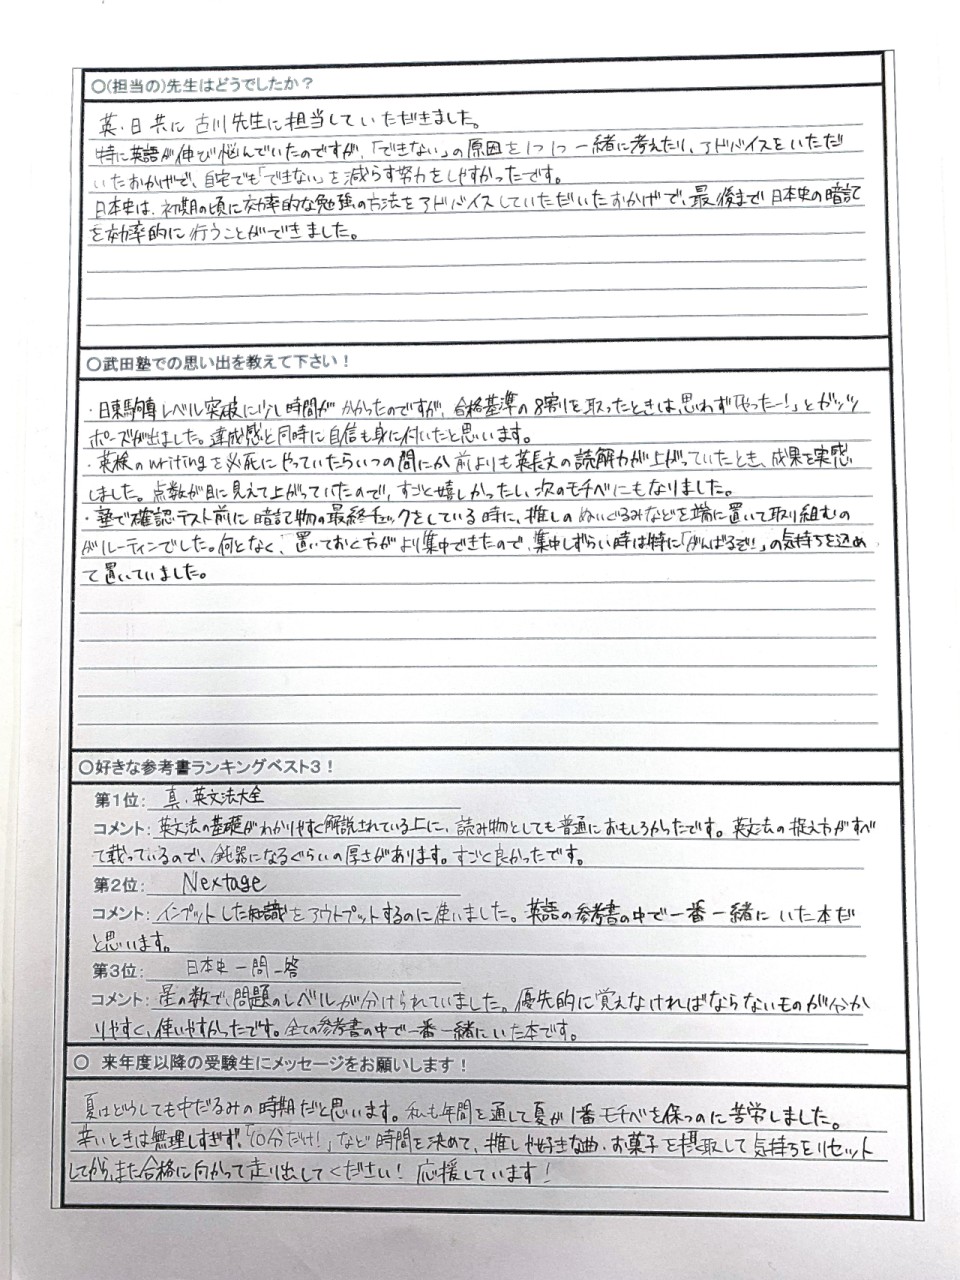 〇(担当の)先生はどうでしたか？
英・日共に古川先生に担当していただきました。
特に英語が伸び悩んでいたのですが、「できない」の原因を1つ1つ一緒に考えたり、アドバイスをいただ
いたおかげで、自宅でも「できない」を減らす努力をしやすかったです。
日本史は、初期の頃に効率的な勉強の方法をアドバイスしていただいたおかげで、最後まで日本史の暗記
を効率的に行うことができました。
〇武田塾での思い出を教えて下さい！
・日東駒専レベル突破に少し時間がかかったのですが、合格基準の8割を取ったときは、思わず「やったー！」とガッツ
ポーズが出ました。達成感と同時に自信も身に付いたと思います。
・英検のwritingを必死にやっていたらいつの間にか前よりも英長文の読解力が上がっていたとき、成果を実感
しました。点数が目に見えて上がっていたので、すごく嬉しかったし、次のモチベにもなりました。
・塾で確認テスト前に暗記物の最終チェックをしている時に、推しのぬいぐるみなどを端に置いて取り組むの
がルーティンでした。何となく、置いておく方がより集中できたので、集中しずらい時は特に「がんばるぞ！」の気持ちを込め
て置いていました。
〇好きな参考書ランキングベスト3！
第1位： 真・英文法大全
コメント：英文法の基礎がわかりやすく解説されている上に、読み物としても普通におもしろかったです。英文法の捉え方がすべ
て載っているので、鈍器になるぐらいの厚さがあります。すごく良かったです。
第2位： Nextage
コメント：インプットした知識をアウトプットするのに使いました。英語の参考書の中で一番一緒にいた本だ
と思います。
第3位： 日本史一問一答
コメント：星の数で、問題のレベルが分けられていました。優先的に覚えなければならないものが分か
りやすく、使いやすかったです。全ての参考書の中で一番一緒にいた本です。
〇 来年度以降の受験生にメッセージをお願いします！
夏はどうしても中だるみの時期だと思います。私も年間を通して夏が1番モチベを保つのに苦労しました。
辛いときは無理しすぎず、「10分だけ！」など時間を決めて、推しや好きな曲・お菓子を摂取して気持ちをリセット
してから、また合格に向かって走り出してください！応援しています！